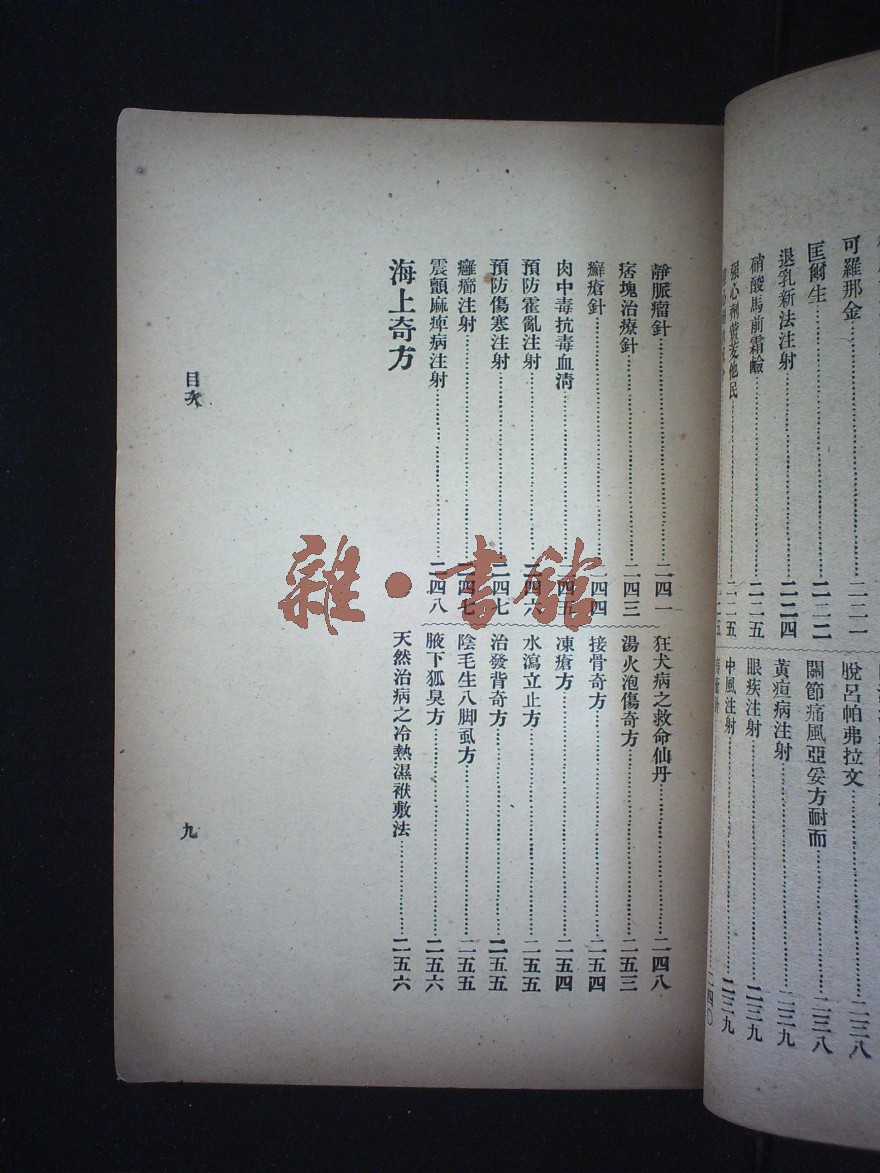 可羅那金……二二一
匡爾生……二二二
退乳新法注射……二二四
硝酸馬前霜鹼……二二五
二二五
脫呂帕弗拉文……二三八
關節痛風亞妥方耐而……二三八
黃疸病注射……二三九
眼疾注射……二三九
中風注射……二三九
二四〇
靜脈瘤針……二四一
痞塊治療針……二四三
癬瘡針……二四四
肉中毒抗毒血清……二四五
預防霍亂注射……二四六
預防傷寒注射……二四七
癰癤注射……二四七
震顫麻痺病注射……二四八
海上奇方
狂犬病之救命仙丹……二四八
湯火泡傷奇方……二五三
接骨奇方……二五四
凍瘡方……二五四
水瀉立止方……二五五
治發背奇方……二五五
陰毛生八脚虱方……二五五
腋下狐臭方……二五六
天然治病之冷熱濕袱敷法……二五六
目次
九
雜·書館